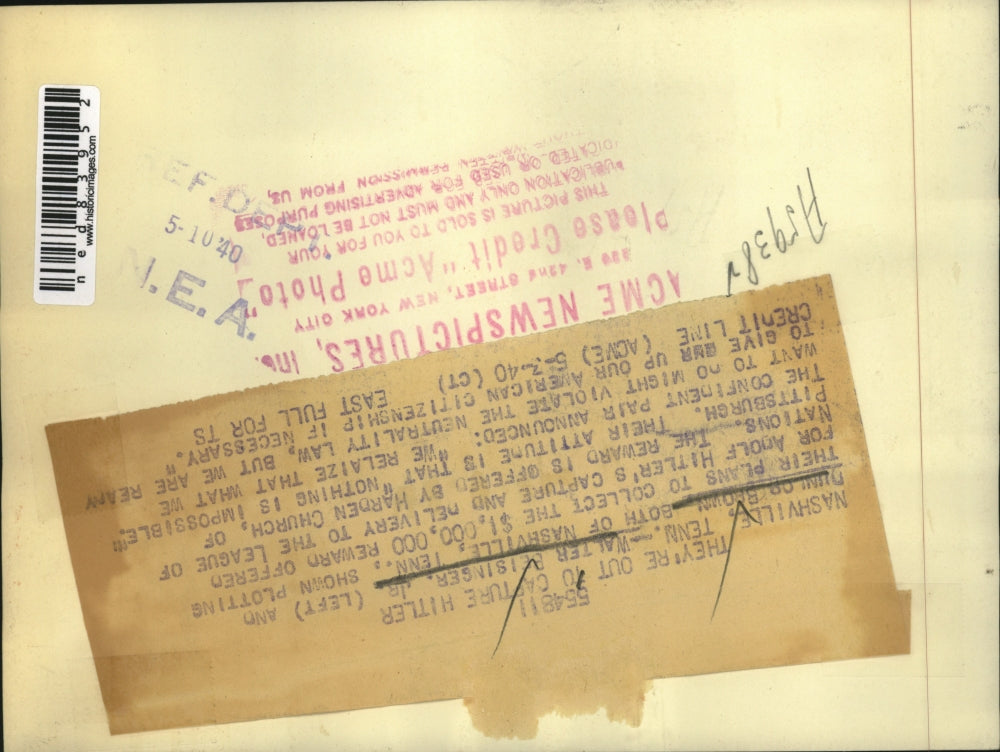 554811
THEY'RE OUT TO CAPTURE HITLER
NASHVILLE, TENN.—WALTER JR. (LEFT) AND
DUNLOP BROWN, BOTH OF NASHVILLE, TENN., SHOWN PLOTTING
THEIR PLANS TO COLLECT THE $1,000,000 REWARD OFFERED
FOR ADOLF HITLER'S CAPTURE AND DELIVERY TO THE LEAGUE OF
NATIONS. THE REWARD IS OFFERED BY HARDEN CHURCH, OF
PITTSBURGH. THEIR ATTITUDE IS THAT "NOTHING IS IMPOSSIBLE."
THE CONFIDENT PAIR ANNOUNCED: "WE RELAIZE THAT WHAT WE
WANT TO DO MIGHT VIOLATE THE NEUTRALITY LAW, BUT WE ARE READY
TO GIVE UP OUR AMERICAN CITIZENSHIP IF NECESSARY."
CREDIT LINE (ACME) 5-7-40 (CT) EAST FULL FOR TS
ACME NEWSPICTURES, Inc.
220 E. 42ND STREET, NEW YORK CITY
Please Credit "Acme Photo"
THIS PICTURE IS SOLD TO YOU FOR YOUR
PUBLICATION ONLY AND MUST NOT BE LOANED,
DICATED OR USED FOR ADVERTISING PURPOSES
WRITTEN PERMISSION FROM US,
REF. DEPT.
5-10 40
N.E.A.
ned83952
www.historicimages.com